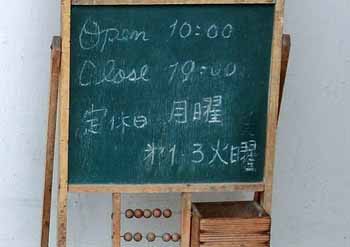 Open 10:00
Close 19:00
定休日 月曜
㐧1.3火曜